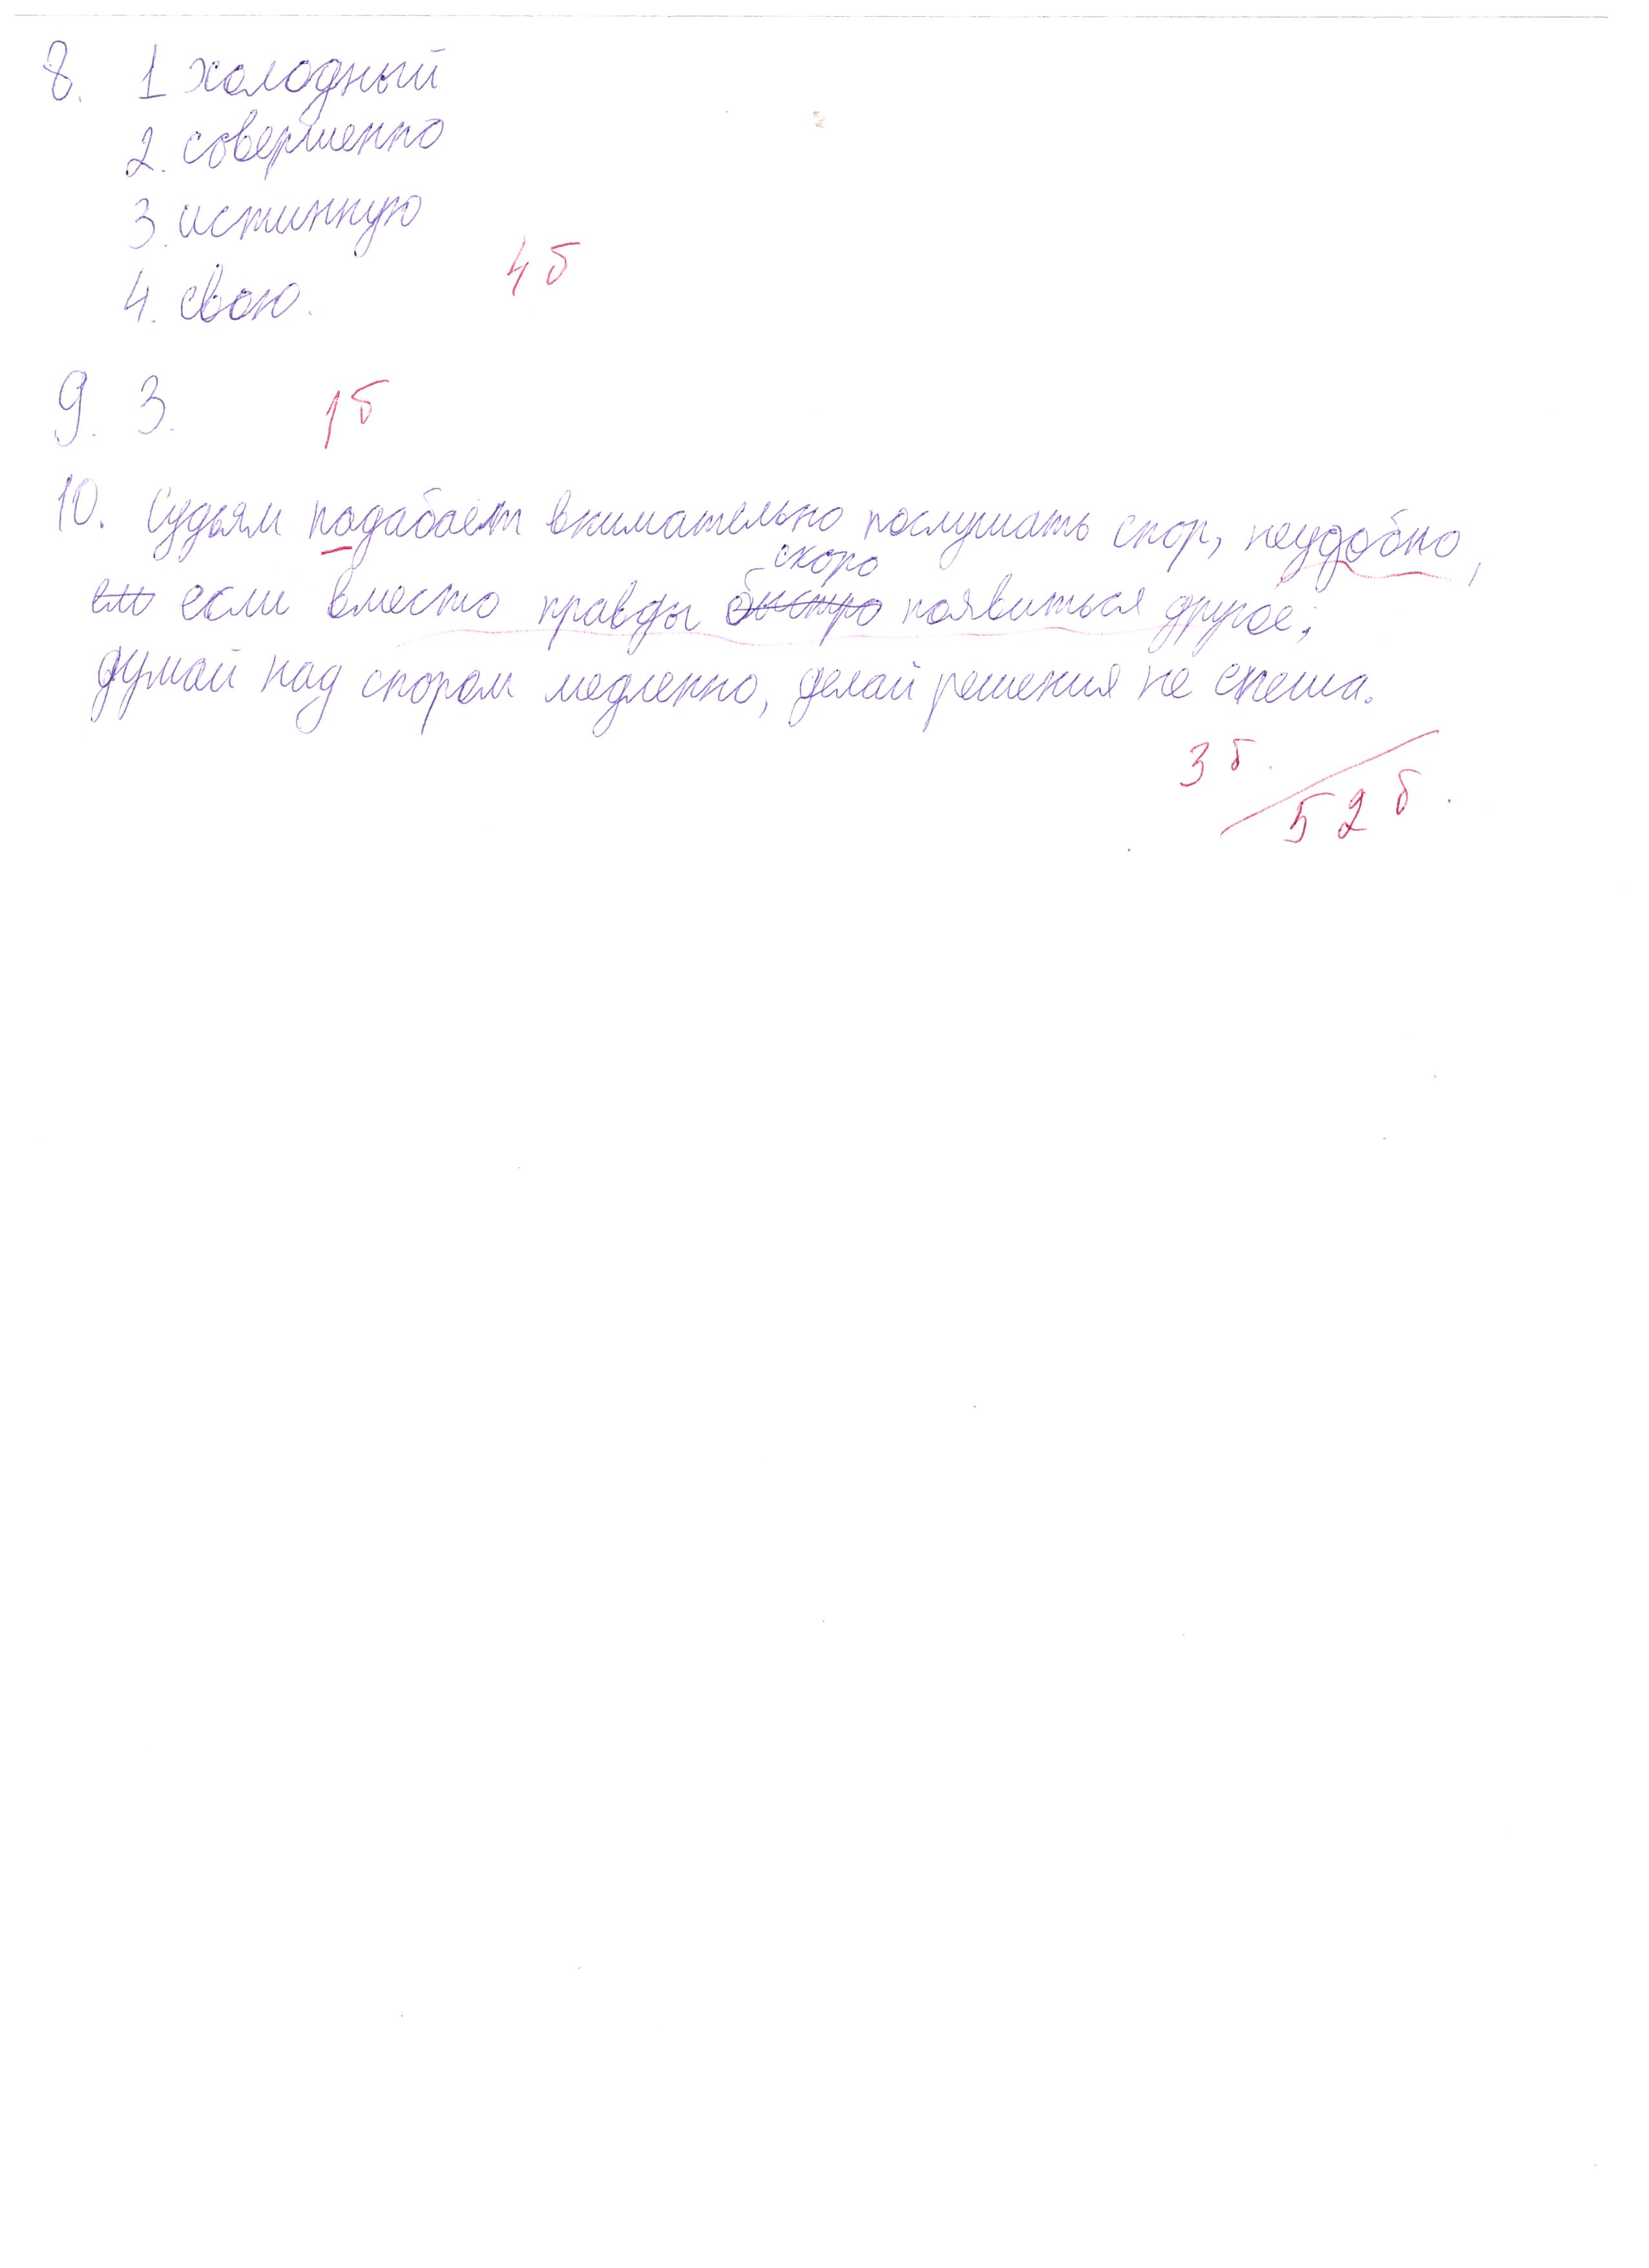 8. 1 холодный
2. совершенно
3. истинную
4 б
4. свою.
9. 3.
1 б
10. Судьям подабает внимательно послушать спор, неудобно,
скоро
если вместо правды быстро появиться другое;
думай над спором медленно, делай решения не спеша.
3 б.
52 б.